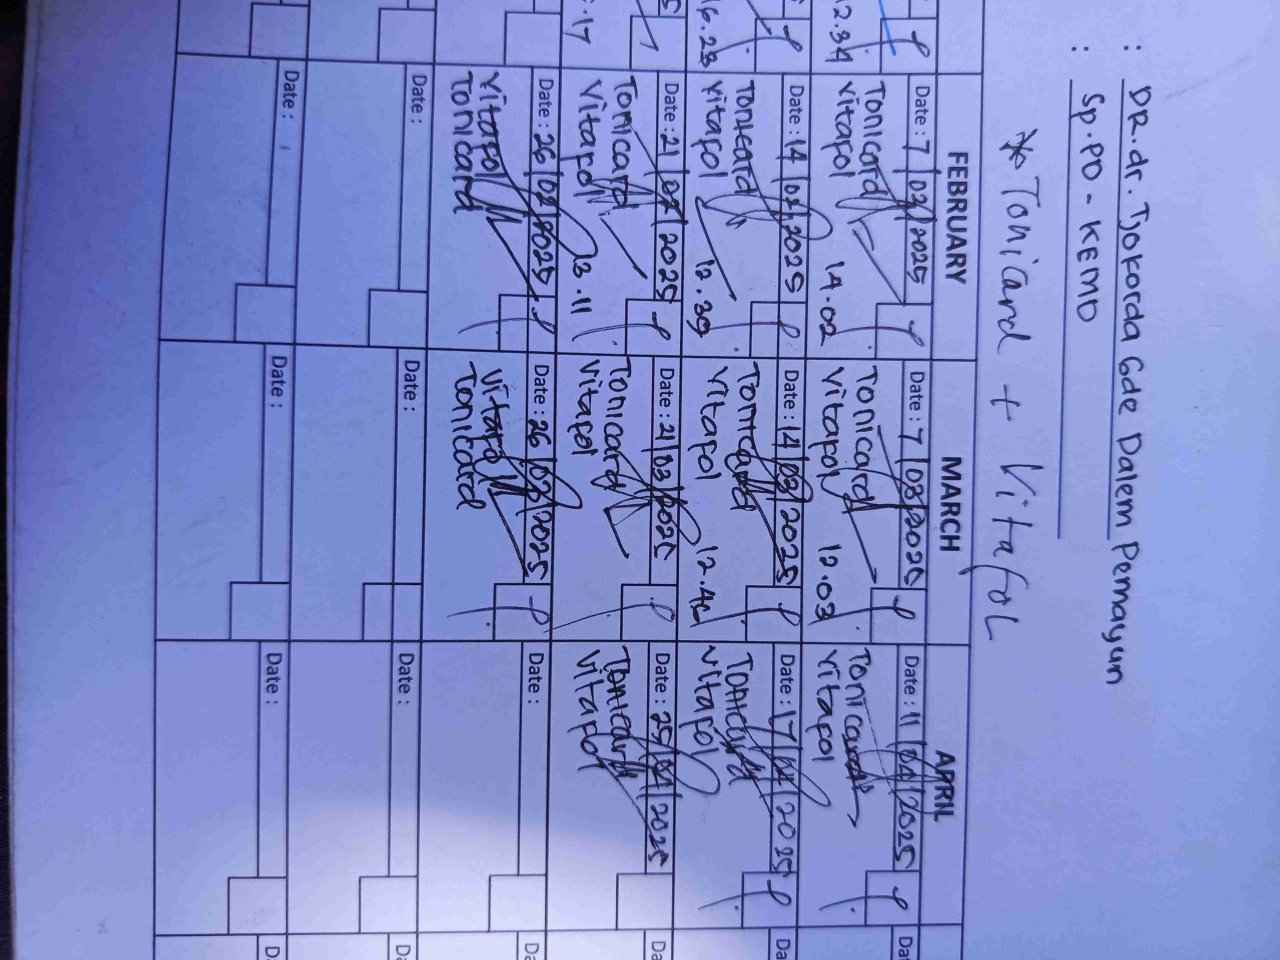 : DR.dr. Tjokorda Gde Dalem Pemayun
: Sp.PD - KEMD
* Tonicard + Vitafol
FEBRUARY
MARCH
APRIL
12.34
Date: 7/02/2025
Tonicard
Vitafol
14.02
Date: 7/03/2025
Tonicard
Vitafol
12.03
Date: 11/04/2025
Tonicard
Vitafol
16.23
Date: 14/02/2025
Tonicard
Vitafol
12.39
Date: 14/03/2025
Tonicard
Vitafol
Date: 17/04/2025
Tonicard
Vitafol
.17
Date: 21/02/2025
Tonicard
Vitafol
13.11
Date: 21/03/2025
Tonicard
Vitafol
Date: 25/04/2025
Tonicard
Vitafol
Date: 26/02/2025
Vitafol
Tonicard
Date: 26/03/2025
Vitafol
Tonicard
Date:
Date:
Date:
Date:
Date:
Date:
Date: